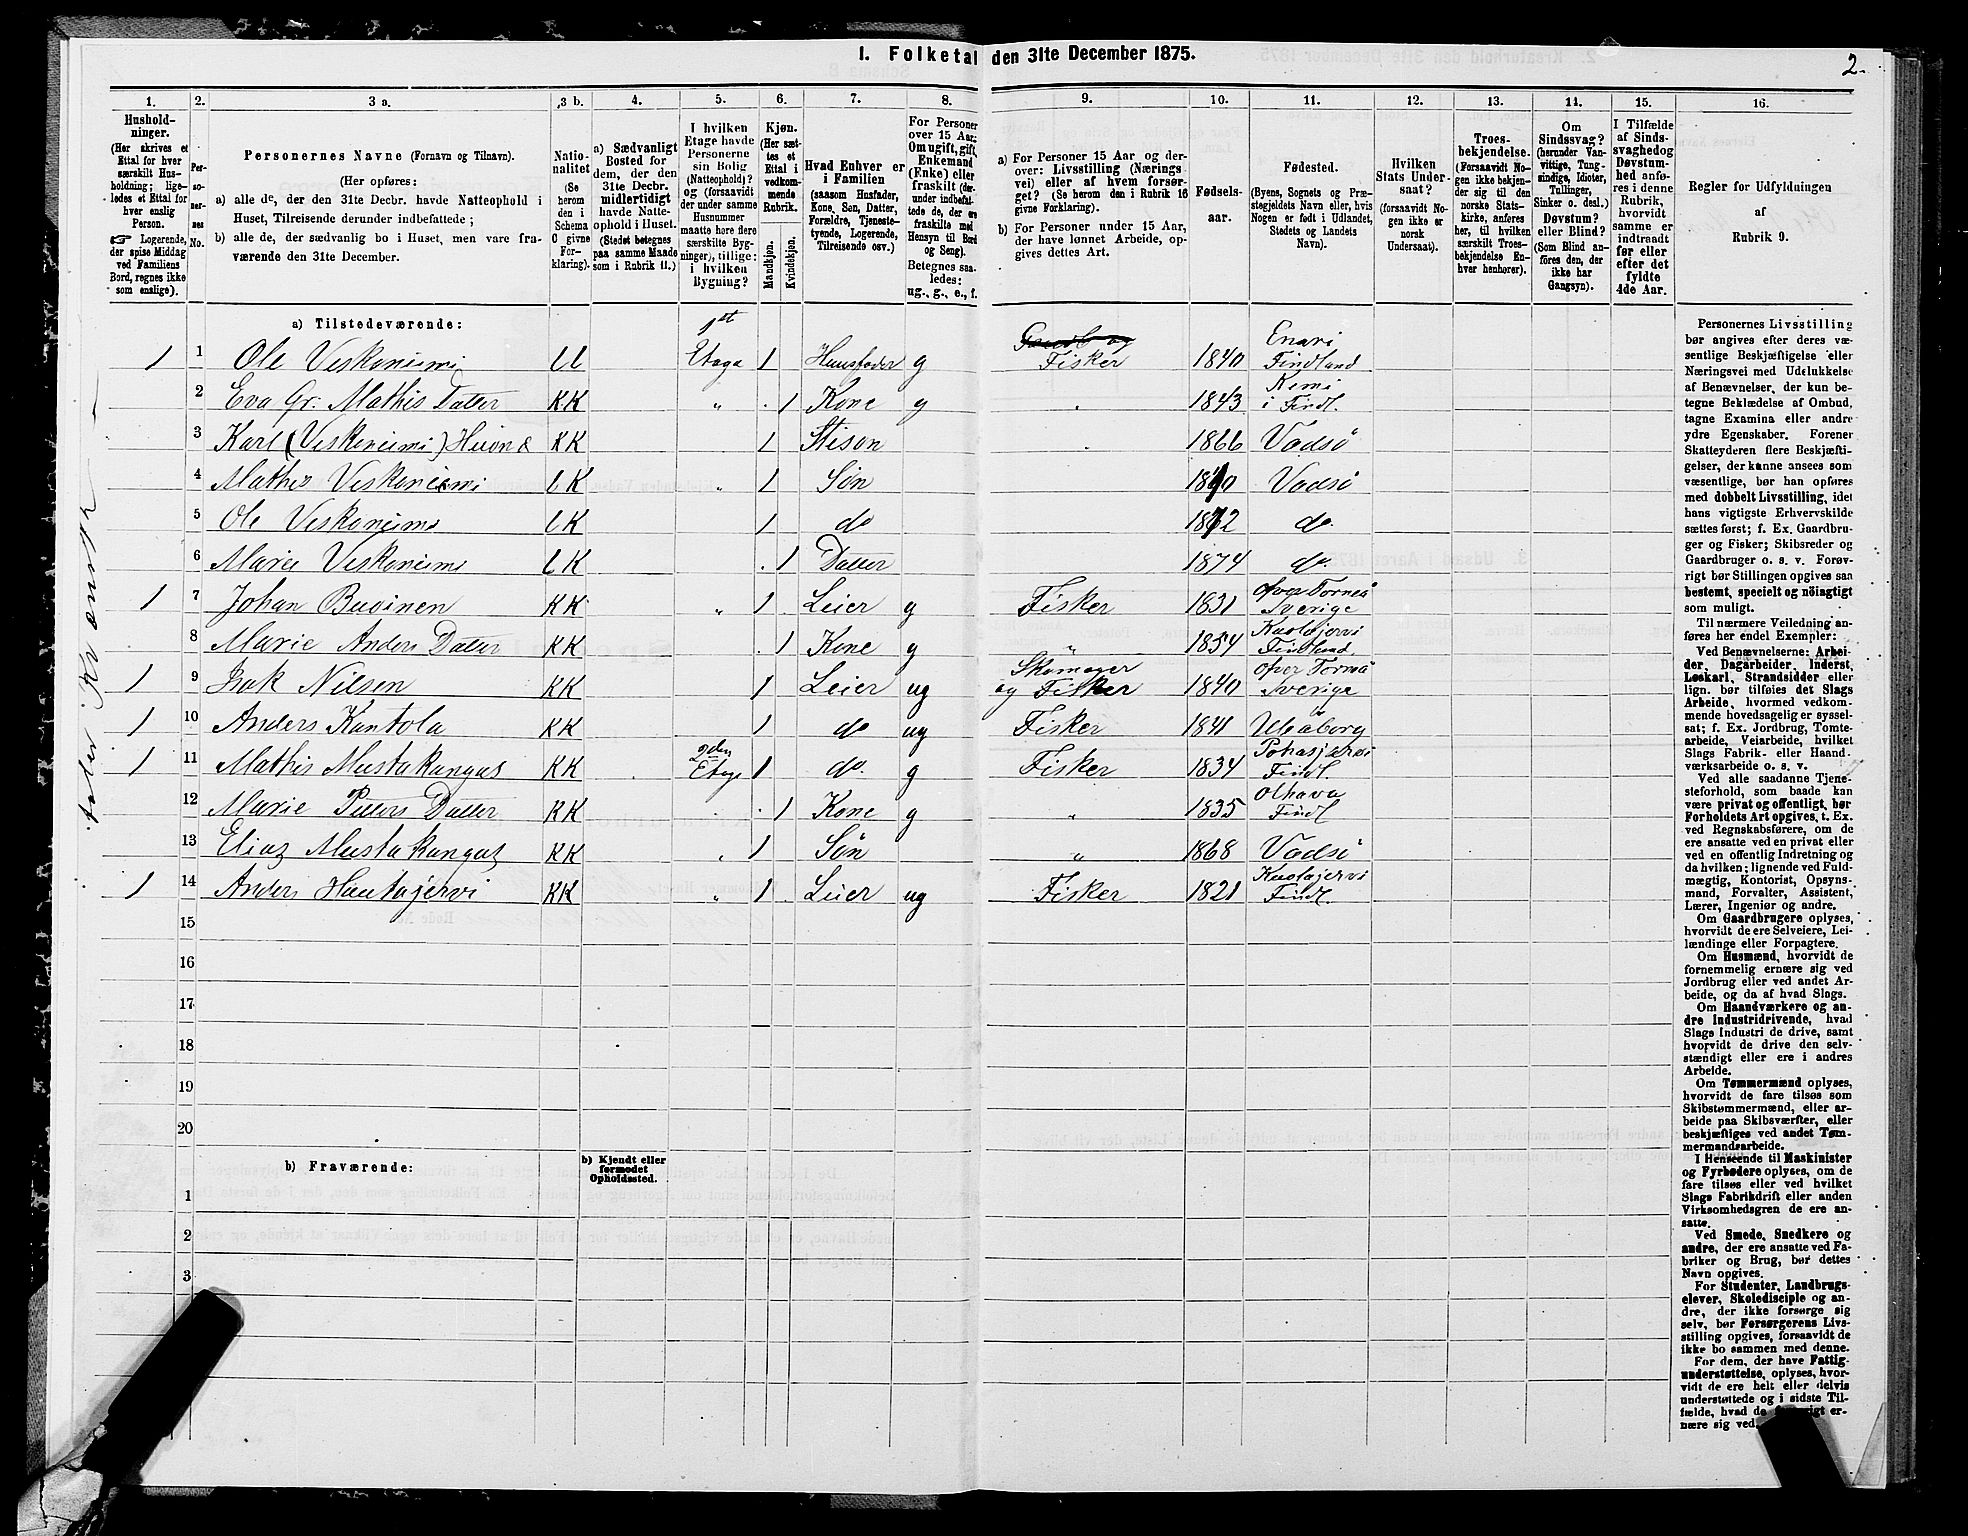 1. Folketal den 31te December 1875.
2.
1. 2. 3 a. 3 b. 4. 5. 6. 7. 8. 9. 10. 11. 12. 13. 14. 15. 16.
Husholdninger.
(Her skrives et
Ettal for hver
særskilt Husholdning;
ligeledes et Ettal for
hver enslig
Person.
☞ Logerende,
der spise Middag
ved Familiens
Bord, regnes ikke
som enslige).
Personernes No.
Personernes Navne (Fornavn og Tilnavn).
(Her opføres:
a) alle de, der den 31te Decbr. havde Natteophold i
Huset, Tilreisende derunder indbefattede;
b) alle de, der sædvanlig bo i Huset, men vare fraværende
den 31te December.
Nationalitet
(Se
herom
den i
Schema
C givne
Forklaring).
a) Sædvanligt
Bosted for
dem, der den
31te Decbr.
midlertidigt
havde Natteophold
i Huset.
(Stedet betegnes
paa samme Maade
som i Rubrik 11.)
I hvilken
Etage havde
Personerne
sin Bolig
(Natteophold)?
og (forsaavidt
der under samme
Husnummer
maatte høre flere
særskilte Bygninger),
tillige:
i hvilken
Bygning?
Kjøn.
(Her sættes
et
Ettal i
vedkommende
Rubrik.
Mandkjøn.
Kvindekjøn.
Hvad Enhver er
i Familien
(saasom Husfader,
Kone, Søn, Datter,
Forældre, Tjenestetyende,
Logerende,
Tilreisende osv.)
For Personer
over 15 Aar:
Om ugift, gift,
Enkemand
(Enke) eller
fraskilt (derunder
indbefattede
de, der ere
fraskilte med
Hensyn til Bord
og Seng).
Betegnes saaledes:
ug., g., e., f.
a) For Personer 15 Aar og derover:
Livsstilling (Næringsvei)
eller af hvem forsørget?
(Se herom den i Rubrik 16
givne Forklaring).
b) For Personer under 15 Aar,
der have lønnet Arbeide, opgives
dettes Art.
Fødselsaar.
Fødested.
(Byens, Sognets og Præstegjeldets
Navn eller, hvis
Nogen er født i Udlandet,
Stedets og Landets
Navn).
Hvilken
Stats Undersaat?
(forsaavidt Nogen
ikke er
norsk
Undersaat).
Troesbekjendelse.
(Forsaavidt Nogen
ikke bekjender
sig til den
norske Statskirke,
anføres
her, til hvilken
særskilt Troesbekjendelse
Enhver
henhører).
Om
Sindssvag?
(herunder Vanvittige,
Tungsindige,
Idioter,
Tullinger,
Sinker o. desl.)
Døvstum?
eller Blind?
(Som Blind anføres
den, der
ikke har
Gangsyn).
I Tilfælde
af Sindssvaghed
og
Døvstumhed
anføres
i denne
Rubrik,
hvorvidt
samme er
indtraadt
før eller
efter det
fyldte
4de Aar.
Regler for Udfyldningen
af
Rubrik 9.
a) Tilstedeværende:
1 1 Ole Viskoniemi U 1st Etage 1 Huusfader g Fisker 1840 Enari Findland
2 Eva Gr. Mathis Datter KK " 1 Kone g " 1843 Kemi i Findl.
3 Karl (Viskoniemi) KK 1 Stisøn " 1866 Vadsø
4 Mathis Viskoniemi LK " 1 Søn 1870 Vadsø
5 Ole Viskoniemi LK 1 do 1872 do.
6 Marie Viskoniemi LK 1 Datter 1874 do.
1 7 Johan Buoinen KK " 1 Leier g Fisker 1831 Över Torneå Sverige
8 Marie Anders Datter KK 1 Kone g " 1834 Kuolajervi Findland
1 9 Isak Nilsen KK 1 Leier ug Skomager og Fisker 1840 Över Torneå Sverige
1 10 Anders Kantola KK 1 do ug Fisker 1841 Uleåborg
1 11 Mathis Mustakangas KK 2den Etage 1 do. g Fisker 1834 Findl.
12 Marie Peters Datter KK 1 Kone g " 1835 Olhava Findl
13 Elias Mustakangas KK " 1 Søn " 1868 Vadsø
1 14 Anders Hautajervi KK " 1 Leier ug Fisker 1821 Kuolajervi Findl.
15
16
17
18
19
20
b) Fraværende:
b) Kjendt eller
formodet
Opholdssted.
1
2
3
Personernes Livsstilling
bør angives efter deres væsentlige
Beskjæftigelse eller
Næringsvei med Udelukkelse
af Benævnelser, der kun betegne
Beklædelse af Ombud,
tagne Examina eller andre
ydre Egenskaber. Forener
Skatteyderen flere Beskjæftigelser,
der kunne ansees som
væsentlige, bør han opføres
med dobbelt Livsstilling, idet
hans vigtigste Erhvervskilde
sættes først; f. Ex. Gaardbruger
og Fisker; Skibsreder og
Gaardbruger o. s. v. Forøvrigt
bør Stillingen opgives saa
bestemt, specielt og nöiagtigt
som muligt.
Til nærmere Veiledning anføres
her endel Exempler:
Ved Benævnelserne: Arbeider,
Dagarbeider, Inderst,
Løskarl, Strandsidder eller
lign. bør tilføies det Slags
Arbeide, hvormed vedkommende
hovedsagelig er sysselsat;
f. Ex. Jordbrug, Tomtearbeide,
Veiarbeide, hvilket
Slags Fabrik- eller Haandværksarbeide
o. s. v.
Ved alle saadanne Tjenesteforhold,
som baade kan
være privat og offentligt, bør
Forholdets Art opgives, t. Ex.
ved Regnskabsførere, om de
ere ansatte ved en privat eller
ved en offentlig Indretning og
da hvilken; lignende ved Fuldmægtig,
Kontorist, Opsynsmand,
Forvalter, Assistent,
Lærer, Ingeniør og andre.
Om Gaardbrugere oplyses,
hvorvidt de ere Selveiere, Leilændinge
eller Forpagtere.
Om Husmænd, hvorvidt de
fornemmelig ernære sig ved
Jordbrug eller ved andet Arbeide,
og da af hvad Slags.
Om Haandværkere og andre
Industridrivende, hvad
Slags Industri de drive, samt
hvorvidt de drive den selvstændigt
eller ere i andres
Arbeide.
Om Tømmermænd oplyses,
hvorvidt de fare tilsøs som
Skibstømmermænd, eller arbeide
paa Skibsværfter, eller
beskjæftiges ved andet Tømmermandsarbeide.
I Henseende til Maskinister
og Fyrbødere oplyses, om de
fare tilsøs eller ved hvilket
Slags Fabrikdrift eller anden
Virksomhedsgren de ere ansatte.
Ved Smede, Snedkere og
andre, der ere ansatte ved Fabriker
og Brug, bør dettes
Navn opgives.
For Studenter, Landbrugselever,
Skoledisciple og andre,
der ikke forsørge sig
selv, bør Forsørgerens Livsstilling
opgives, forsaavidt de
ikke bo sammen med denne.
For dem, der have Fattigunderstøttelse,
oplyses, hvorvidt
de ere helt eller delvis
understøttede og i sidste Tilfælde,
hvad de
ernære sig ved.